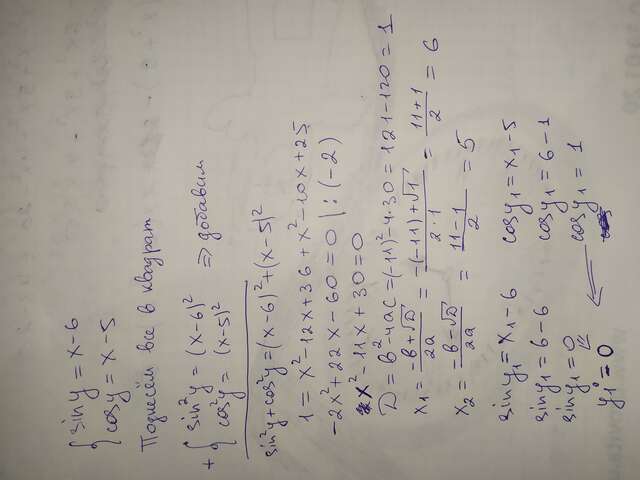 { sin y = x-6
{ cos y = x-5
Поднесём все в квадрат
+ { sin²y = (x-6)²
{ cos²y = (x-5)² ⇒ добавим
sin²y+cos²y = (x-6)²+(x-5)²
1 = x²-12x+36+x²-10x+25
-2x²+22x-60=0 | :(-2)
x²-11x+30=0
D = b²-4ac = (-11)²-4·30 = 121-120 = 1
x₁ = (-b+√D)/2a = (-(-11)+√1)/(2·1) = (11+1)/2 = 6
x₂ = (-b-√D)/2a = (11-1)/2 = 5
sin y₁ = x₁-6 cos y₁ = x₁-5
sin y₁ = 6-6 cos y₁ = 6-1
sin y₁ = 0 cos y₁ = 1
y₁ = 0